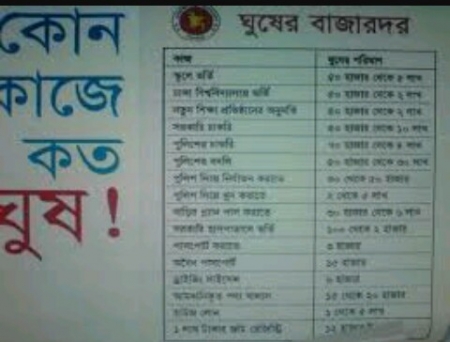 কোন
কাজে
কত
ঘুষ!
ঘুষের বাজারদর
কাজ ঘুষের পরিমাণ
স্কুলে ভর্তি ৫০ হাজার থেকে ৫ লাখ
ঢাকা বিশ্ববিদ্যালয়ে ভর্তি ৫০ হাজার থেকে ২ লাখ
নতুন শিক্ষা প্রতিষ্ঠানের অনুমতি ৫০ হাজার থেকে ২ লাখ
সরকারি চাকরি ৫০ হাজার থেকে ১০ লাখ
পুলিশের চাকরি হাজার থেকে লাখ
পুলিশের বদলি ৫০ হাজার থেকে ৩০ লাখ
পুলিশ দিয়ে নির্যাতন করাতে ৩০ থেকে ৫০ হাজার
পুলিশ দিয়ে খুন করাতে ২ থেকে ৫ লাখ
বাড়ির প্ল্যান পাস করাতে ৩০ হাজার থেকে লাখ
সরকারি হাসপাতালে ভর্তি ১০০ থেকে ২ হাজার
পাসপোর্ট করাতে ৩ হাজার
অবৈধ পাসপোর্ট ১৫ হাজার
ড্রাইভিং লাইসেন্স হাজার
আমদানিকৃত পণ্য খালাস ১৫ থেকে ২০ হাজার
হাউজ লোন ১ থেকে ৫ লাখ
১ লাখ টাকার জমি রেজিস্ট্রি ১২ হাজার